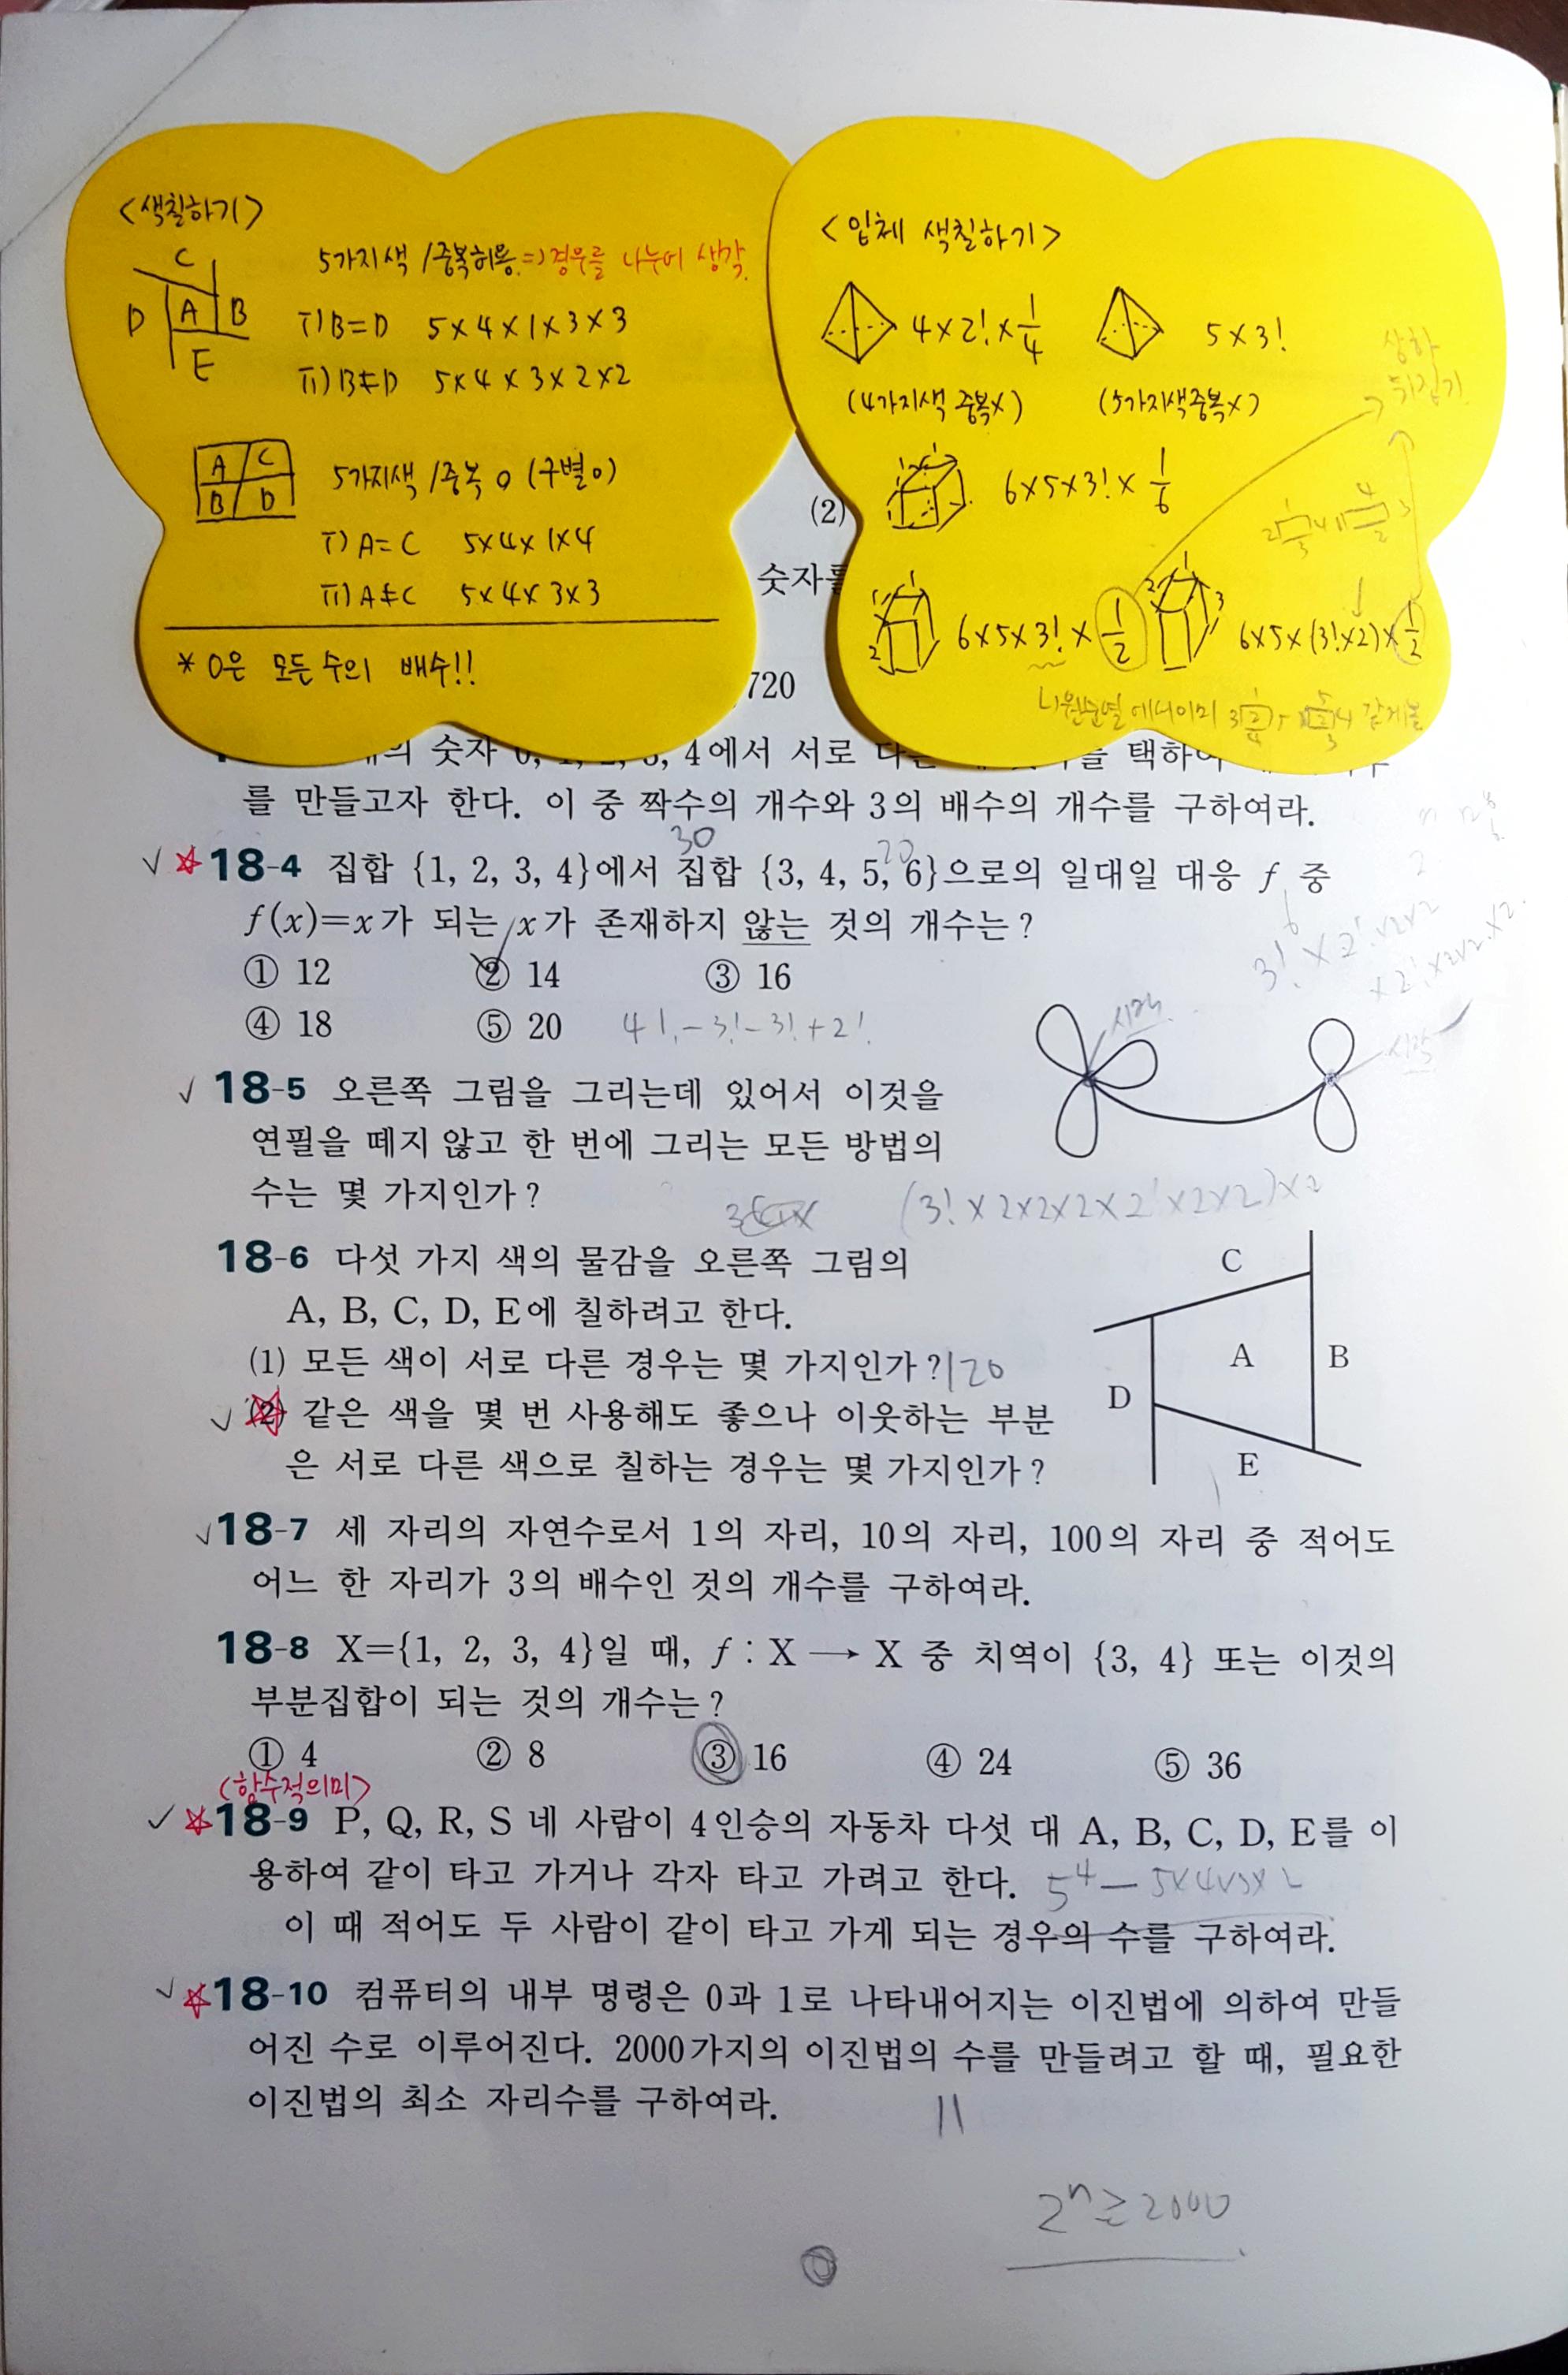 <색칠하기>
C
D A B
E
5가지색 /중복허용 => 경우를 나누어 생각.
i) B=D 5×4×1×3×3
ii) B≠D 5×4×3×2×2
A C
B D
5가지색 /중복 o (구별o)
i) A=C 5×4×1×4
ii) A≠C 5×4×3×3
* 0은 모든 수의 배수!!
<입체 색칠하기>
4×2!×1/4
5×3!
(4가지색 중복×)
(5가지색중복×)
상하
뒤집기
6×5×3!×1/6
6×5×3!×1/2
6×5×(3!×2)×1/2
(2)
숫자를
720
숫자 0, 1, 2, 3, 4에서 서로 다른 를 택하여
를 만들고자 한다. 이 중 짝수의 개수와 3의 배수의 개수를 구하여라.
30 20
18-4 집합 {1, 2, 3, 4}에서 집합 {3, 4, 5, 6}으로의 일대일 대응 f 중
f(x)=x가 되는 x가 존재하지 않는 것의 개수는?
① 12 ② 14 ③ 16
④ 18 ⑤ 20 4!-3!-3!+2!
시작
시작
18-5 오른쪽 그림을 그리는데 있어서 이것을
연필을 떼지 않고 한 번에 그리는 모든 방법의
수는 몇 가지인가?
(3!×2×2×2×2!×2×2)×2
18-6 다섯 가지 색의 물감을 오른쪽 그림의
A, B, C, D, E에 칠하려고 한다.
(1) 모든 색이 서로 다른 경우는 몇 가지인가? 120
(2) 같은 색을 몇 번 사용해도 좋으나 이웃하는 부분
은 서로 다른 색으로 칠하는 경우는 몇 가지인가?
C
A
B
D
E
18-7 세 자리의 자연수로서 1의 자리, 10의 자리, 100의 자리 중 적어도
어느 한 자리가 3의 배수인 것의 개수를 구하여라.
18-8 X={1, 2, 3, 4}일 때, f : X → X 중 치역이 {3, 4} 또는 이것의
부분집합이 되는 것의 개수는?
① 4 ② 8 ③ 16 ④ 24 ⑤ 36
(함수적의미)
18-9 P, Q, R, S 네 사람이 4인승의 자동차 다섯 대 A, B, C, D, E를 이
용하여 같이 타고 가거나 각자 타고 가려고 한다. 5⁴-5×4×3×2
이 때 적어도 두 사람이 같이 타고 가게 되는 경우의 수를 구하여라.
18-10 컴퓨터의 내부 명령은 0과 1로 나타내어지는 이진법에 의하여 만들
어진 수로 이루어진다. 2000가지의 이진법의 수를 만들려고 할 때, 필요한
이진법의 최소 자리수를 구하여라.
11
2ⁿ≥2000